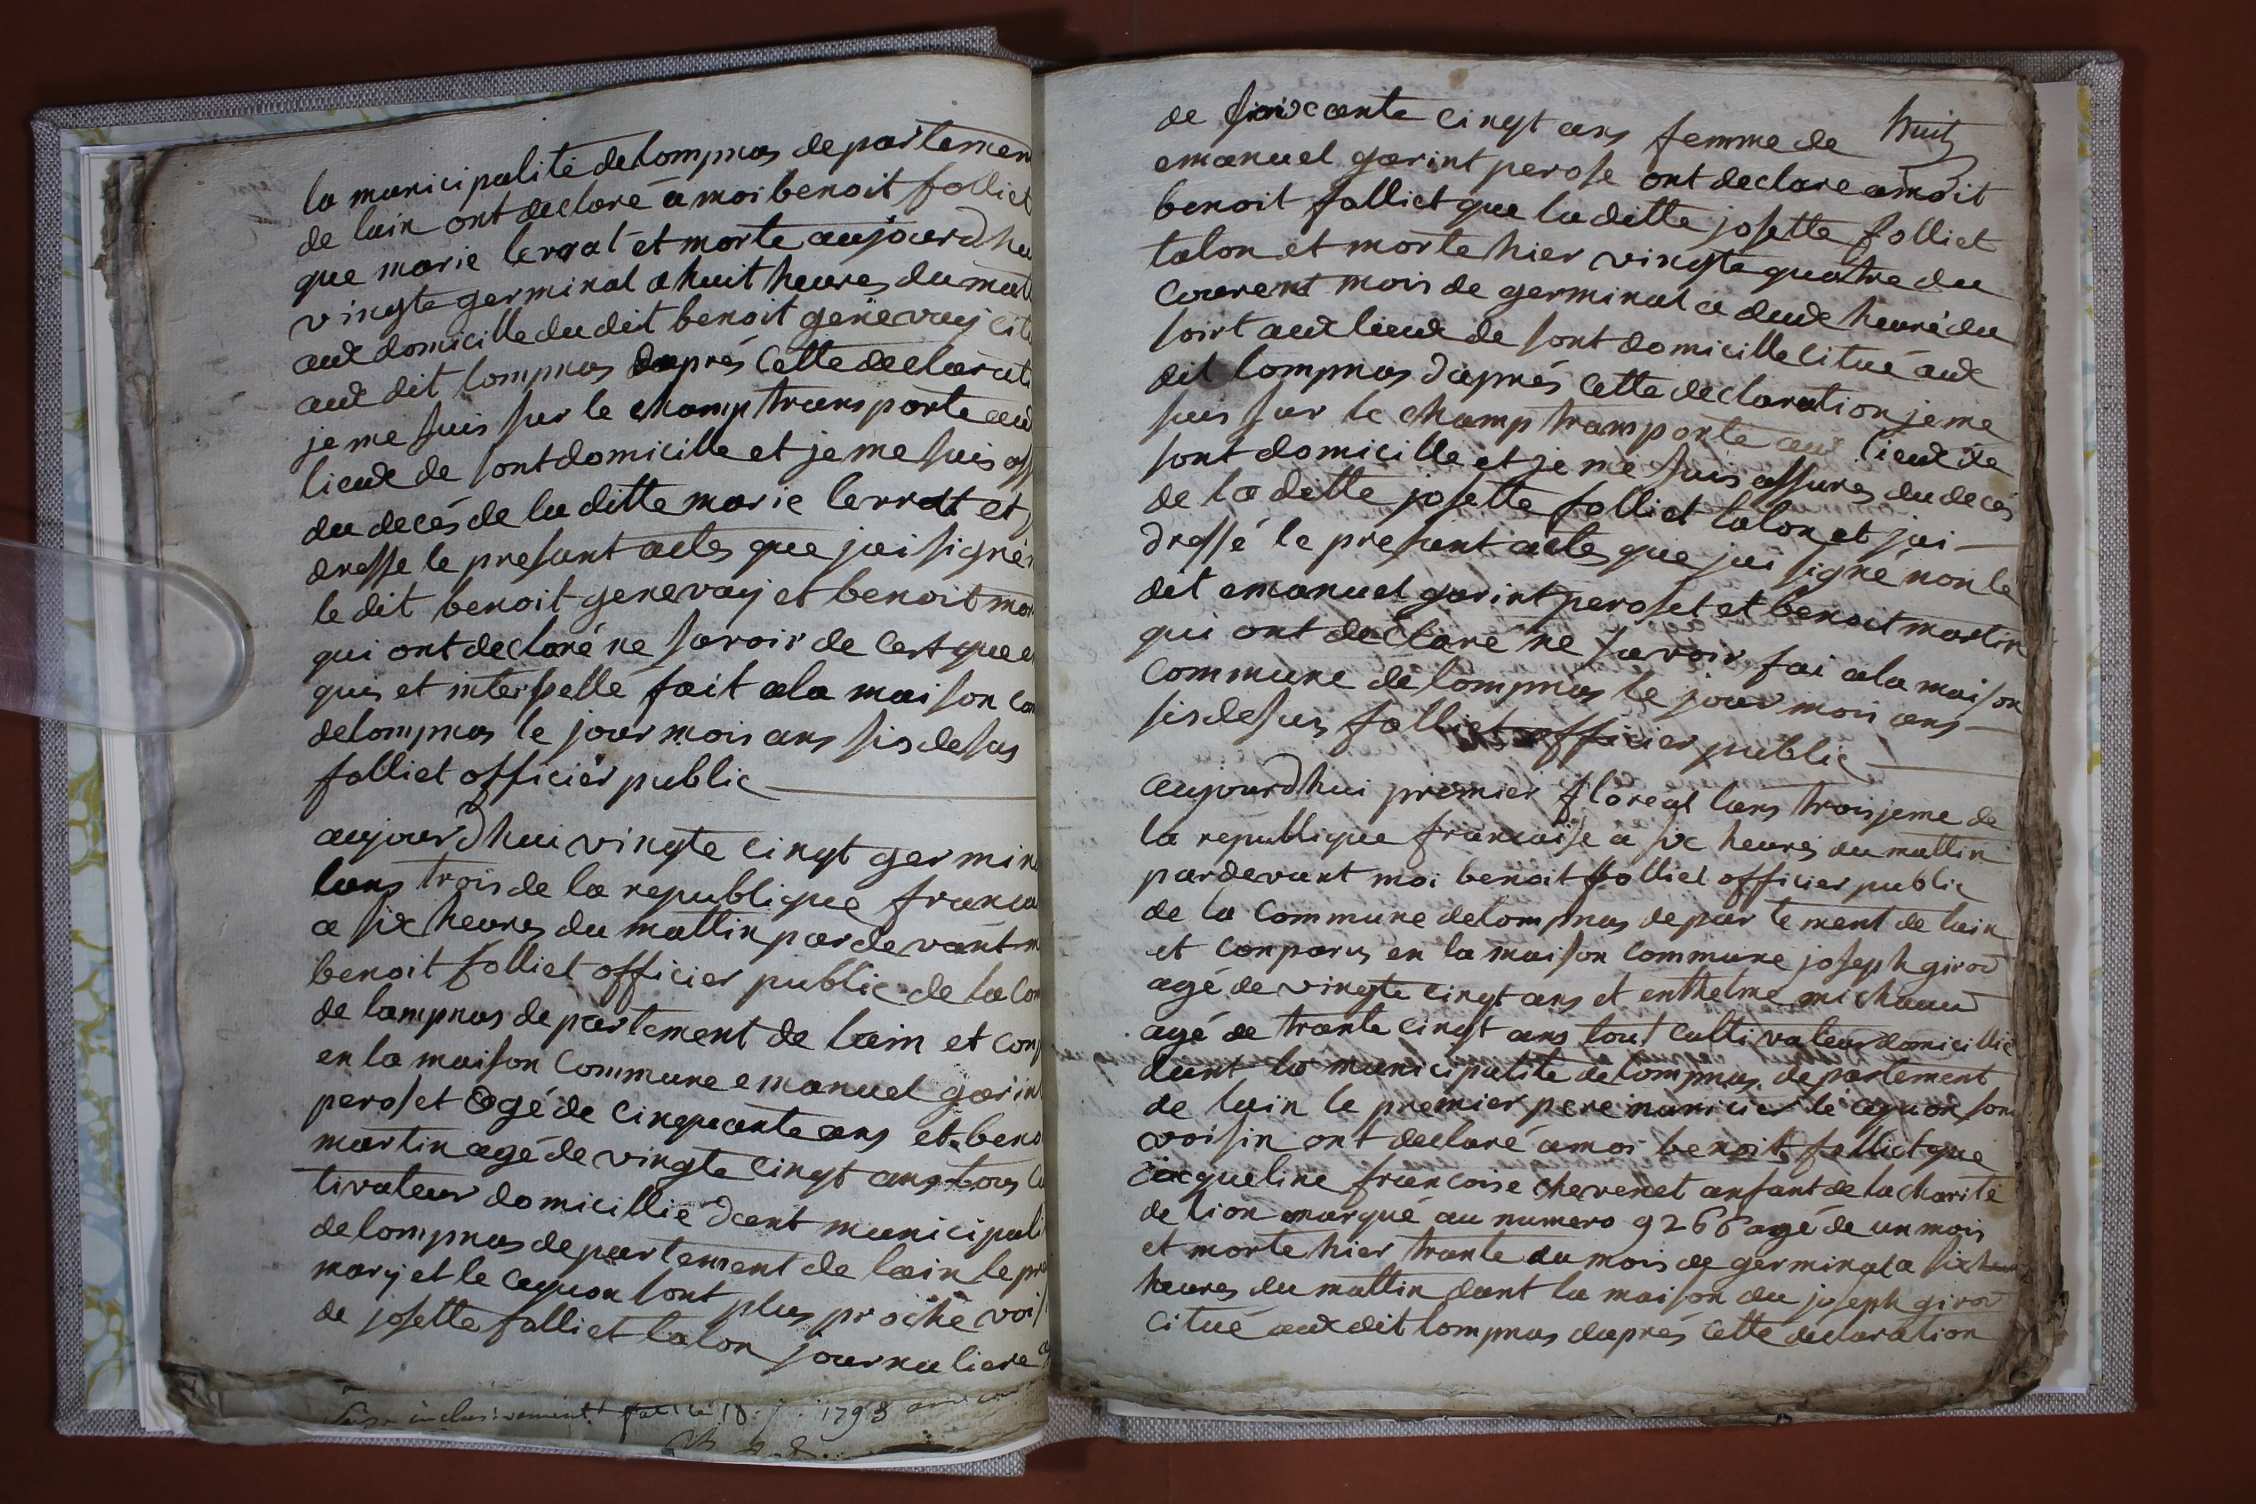 la municipalite de lompnas departemen
de lain ont declaré a moi benoit folliet
que marie lervat et morte aujourdhu
vingte germinal a huit heures du mat
aux domicille du dit benoit genevay cit
aux dit lompnas daprés cette declarat
je me suis sur le champ transporte aux
lieux de sont domicille et je me suis ass
du decés de la ditte marie lerrat et
dresse le presant actes que jai signé
le dit benoit genevay et benoit mar
qui ont declaré ne savoir de ce
quis et interpelle fait a la maison com
de lompnas le jour mois ans sis desus
folliet officier public
aujourdhui vingte cinqt germin
lans trois de la republique franca
a six heures du mattin par devant m
benoit folliet officier public de la com
de lompnas departement de lain et conp
en la maison commune emanuel garint
peroset agé de cinqcante ans et beno
martin agé de vingte cinqt ans tous cu
tivateur domicillié dant municipali
de lompnas departement de lain le pre
mary et le cequon sont plus proche vois
de josette folliet talon journaliere
inclusivement fait le 18 1793
huit
de soixcante cinqt ans femme de
emanuel garint perose ont declare a moit
benoit folliet que la ditte josette folliet
talon et morte hier vingte quatre du
courent mois de germinal a deux heure du
soirt aux lieux de sont domicille citué aux
dit lompnas daprés cette declaration je me
suis sur le champ transporte aux lieux de
sont domicille et je me suis assures du decés
de la ditte josette folliet talon et jai
dressé le presant actes que jai signé non le
dit emanuel garint peroset et benoit martin
qui ont declaré ne savoir fai a la maison
commune de lompnas le jour mois ans
sis desus folliet officier public
aujourdhui premier floreal lans troisjeme de
la republique francaise a six heures du mattin
pardevant moi benoit folliet officier public
de la commune de lompnas departement de lain
et conparus en la maison commune joseph girod
agé de vingte cinqt ans et enthelme michaud
agé de trante cinqt ans tout cultivateur domicillié
dant la municipalité de lompnas departement
de lain le premier pere nuricier le cequon son
voisin ont declaré a moi benoit folliet que
jacqueline francoise chevenet anfant de la charité
de lion marqué au numero 9266 agé de un mois
et morte hier trante du mois de germinal a six heu
heures du mattin dant la maison du joseph girod
citué aux dit lompnas daprés cette declaration